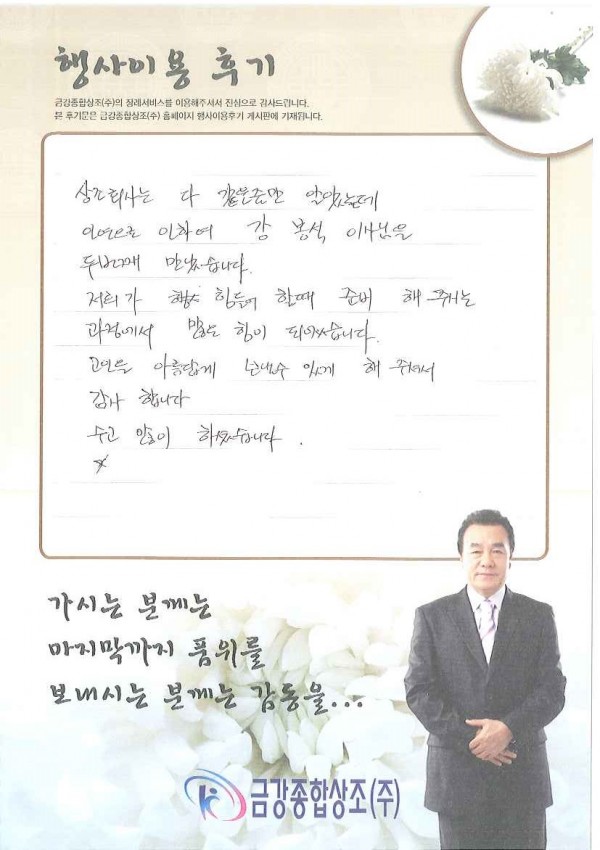 행사이용 후기
금강종합상조(주)의 장례서비스를 이용해주셔서 진심으로 감사드립니다.
본 후기문은 금강종합상조(주) 홈페이지 행사이용후기 게시판에 기재됩니다.
상조회사는 다 같은줄만 알았는데
인연으로 인하여 강 봉석 이사님을
두번이나 만났습니다.
저희가 힘들어 할때 준비 해 주시는
과정에서 많은 힘이 되었습니다.
고인을 아름답게 보낼수 있게 해 주셔서
감사 합니다
수고 많이 하셨습니다.
가시는 분께는
마지막까지 품위를
보내시는 분께는 감동을...
금강종합상조(주)